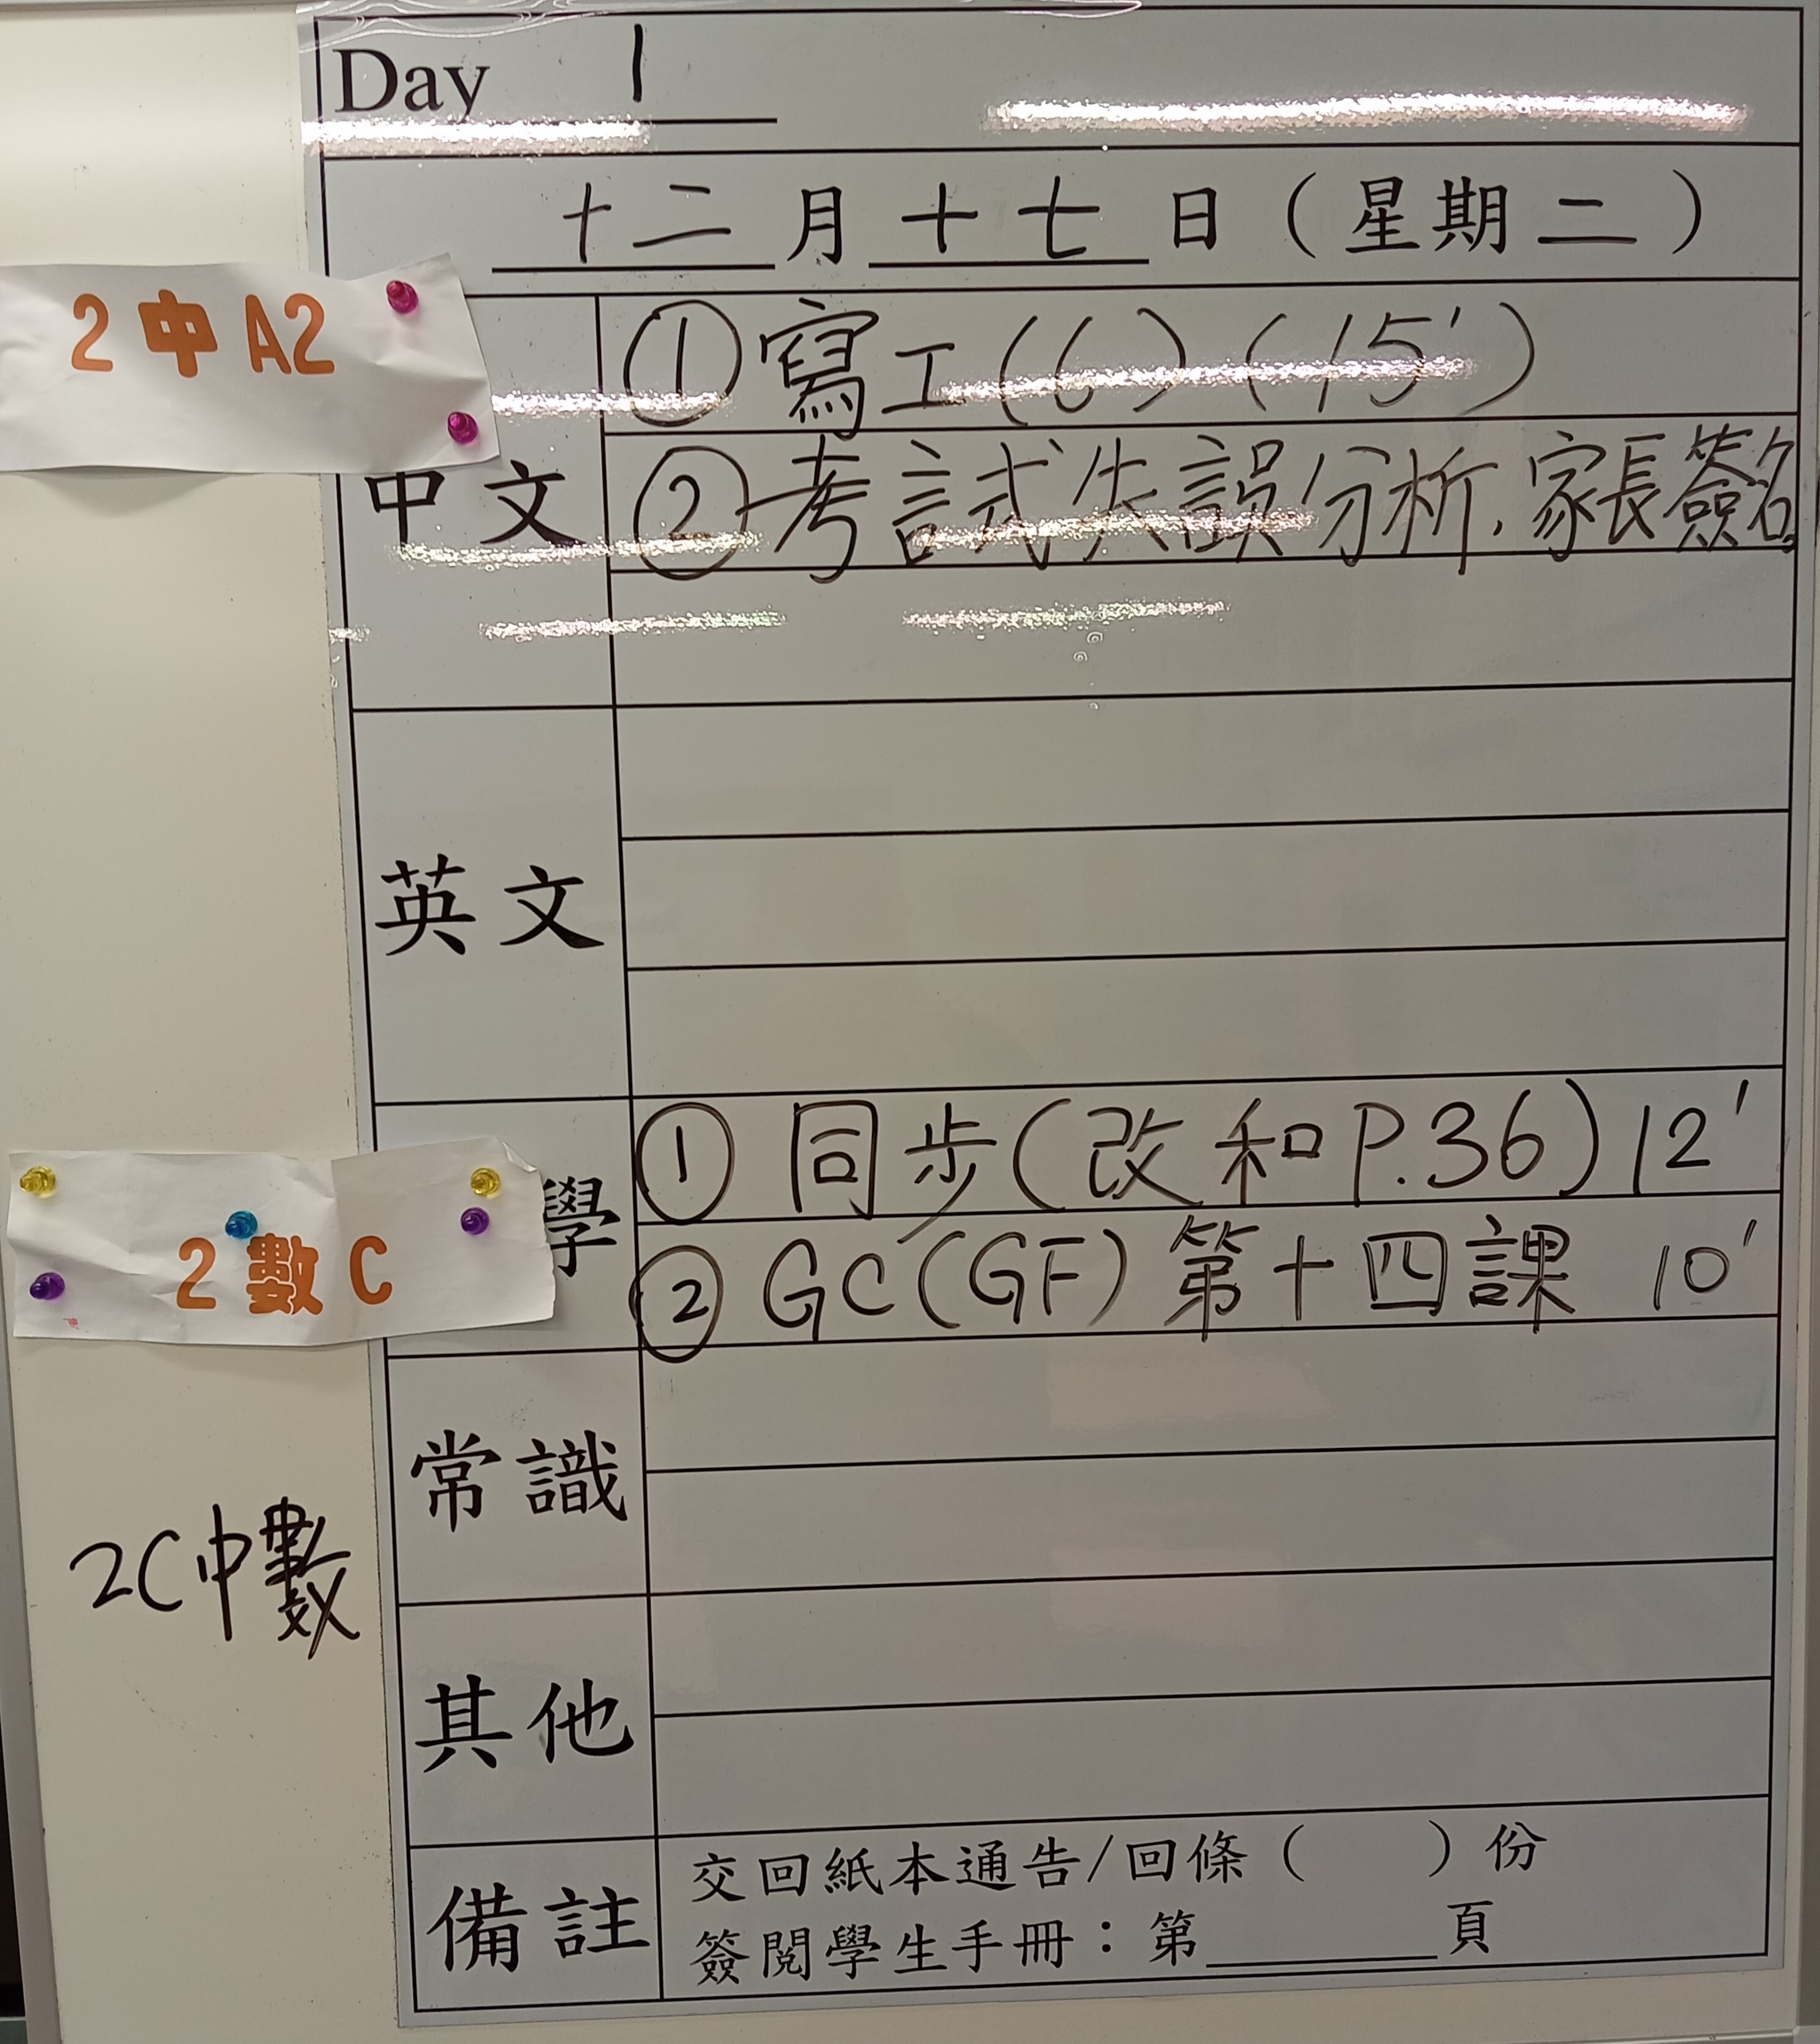 Day 1
十二月十七日（星期二）
2中A2
中文
①寫工(6)(15')
②考試失誤分析，家長簽名。
英文
2數C
學
①同步(改和P.36)12'
②GC(GF)第十四課 10'
常識
2C中數
其他
備註
交回紙本通告/回條（ ）份
簽閱學生手冊：第____頁